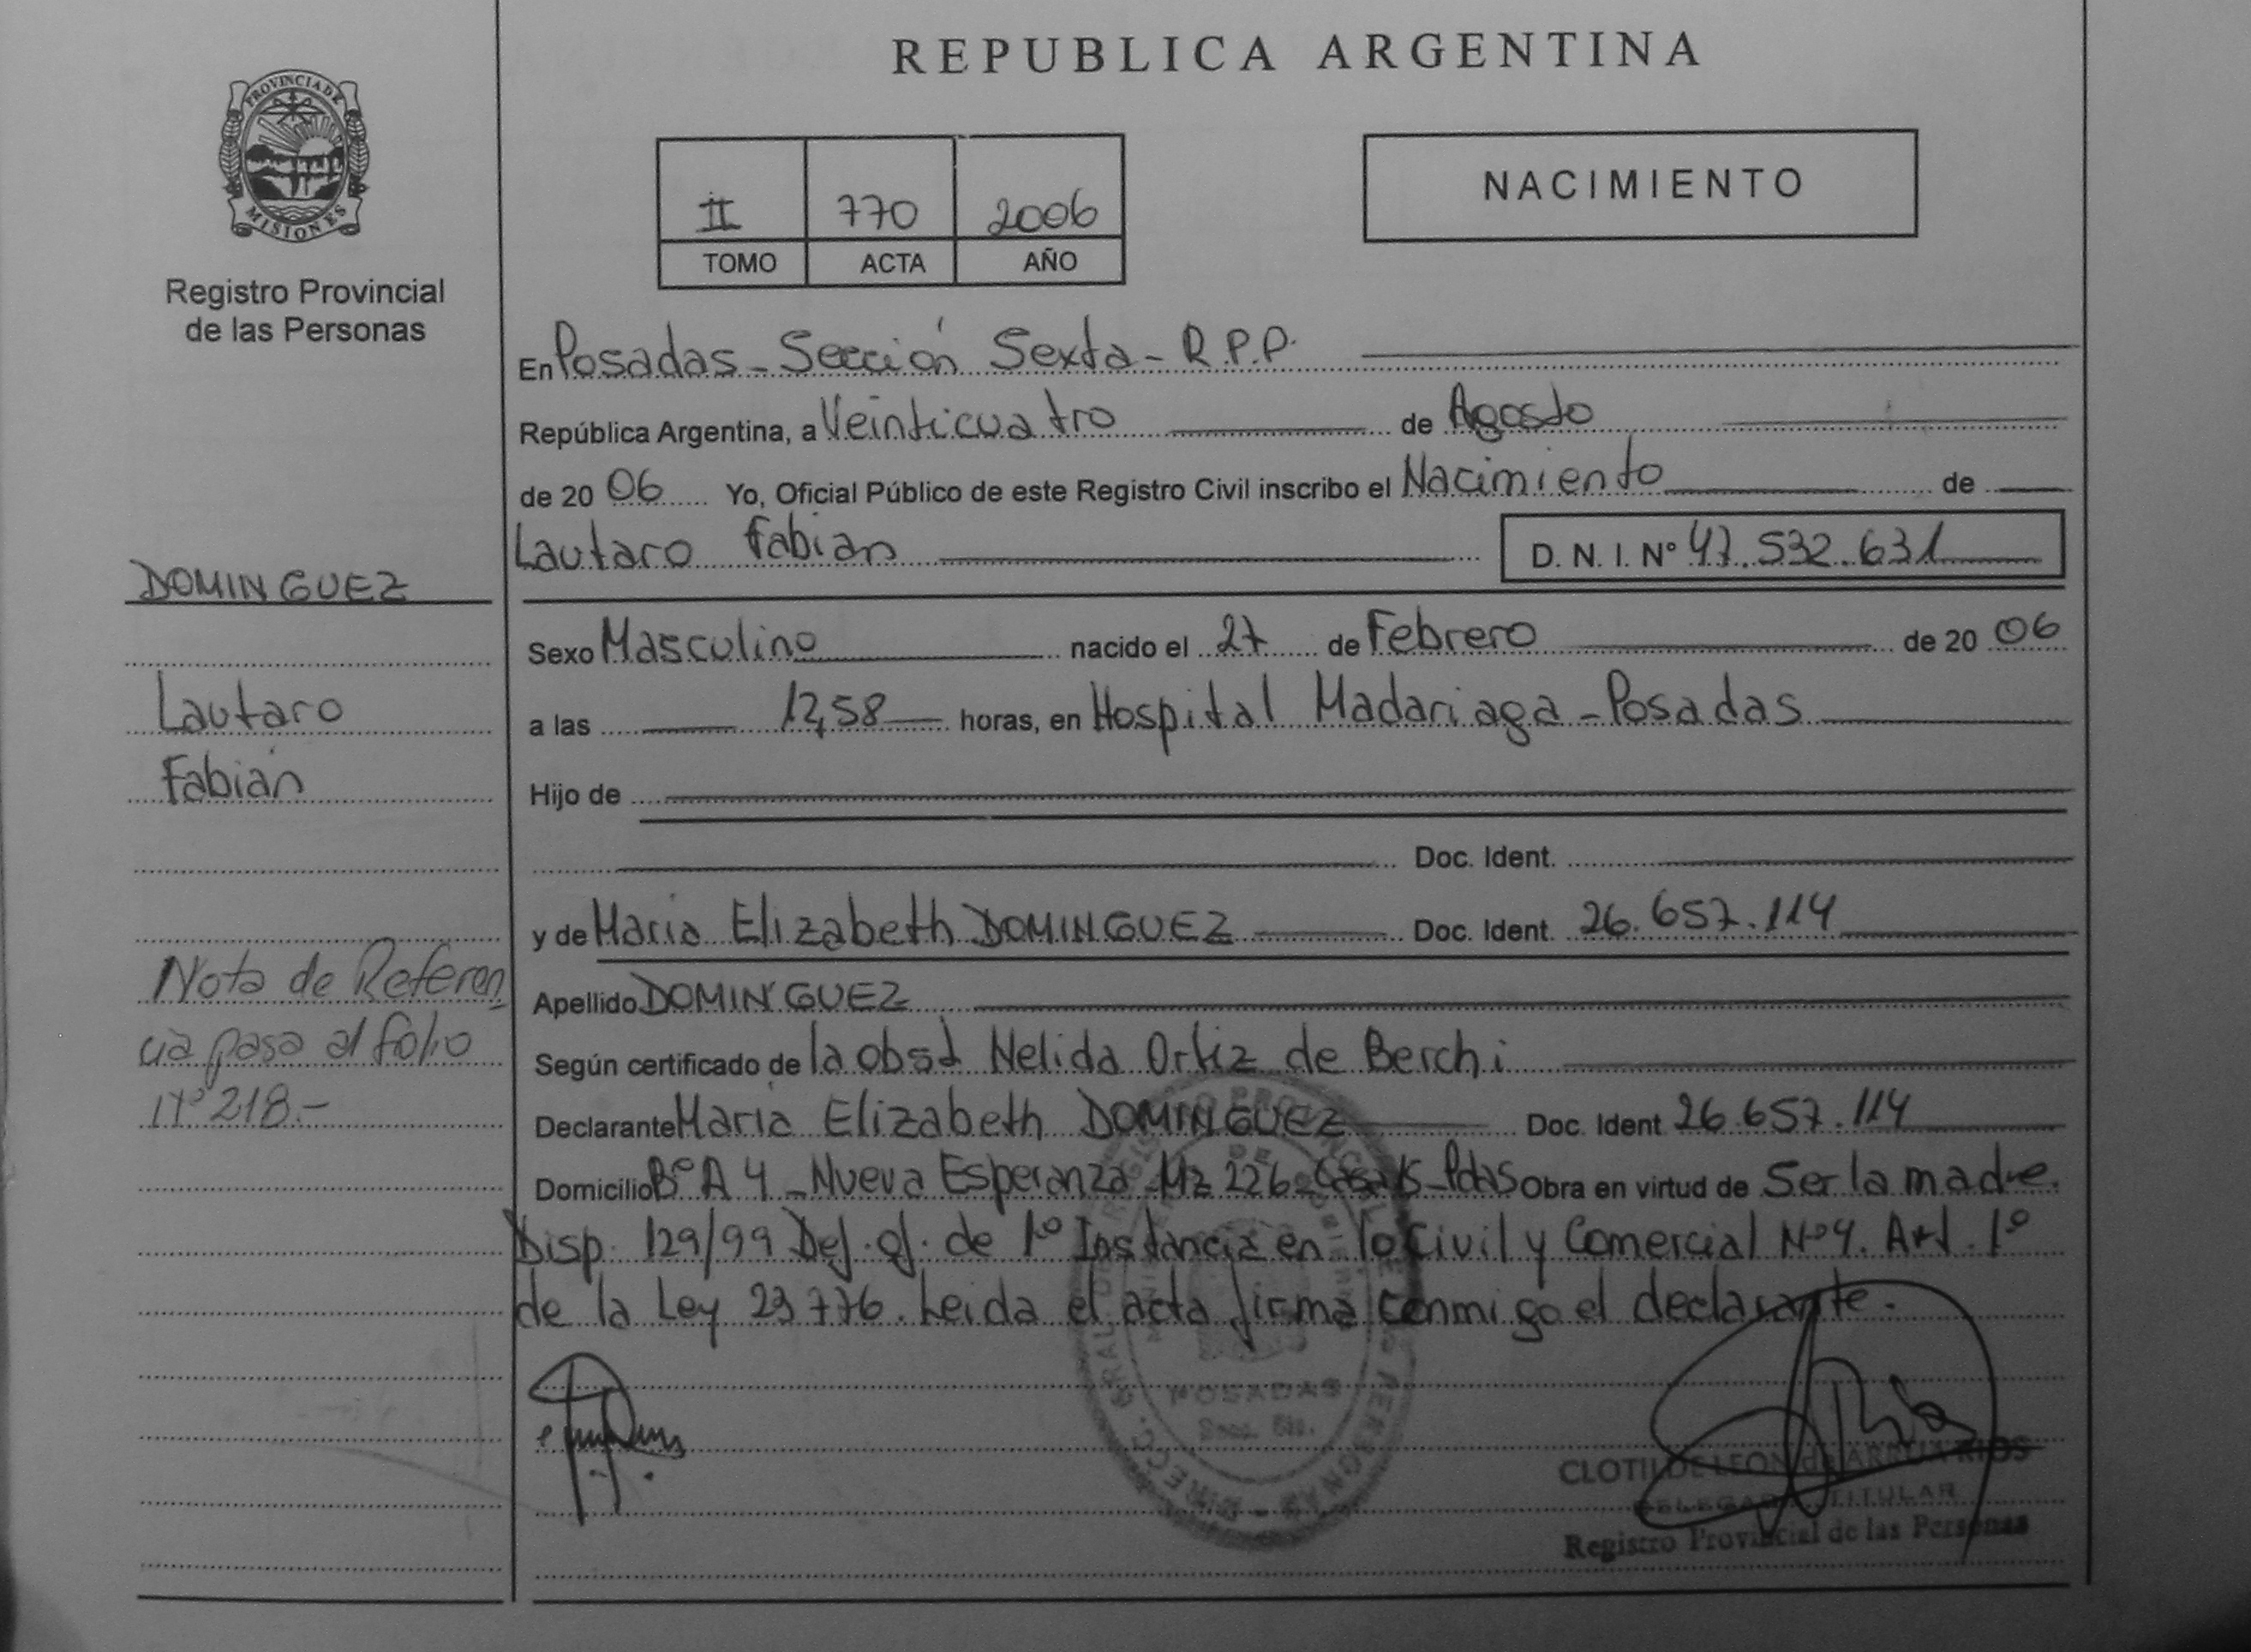 REPUBLICA ARGENTINA
PROVINCIA DE
MISIONES
Registro Provincial
de las Personas
II 770 2006
TOMO ACTA AÑO
NACIMIENTO
En Posadas - Sección Sexta - R.P.P.
República Argentina, a Veinticuatro de Agosto
de 20 06 Yo, Oficial Público de este Registro Civil inscribo el Nacimiento de
Lautaro Fabian D. N. I. Nº 47.532.631
DOMINGUEZ
Lautaro
Fabián
Nota de Referen
cia pasa al folio
Nº 218.-
Sexo Masculino nacido el 27 de Febrero de 20 06
a las 12,58 horas, en Hospital Madariaga - Posadas
Hijo de
Doc. Ident.
y de Maria Elizabeth DOMINGUEZ Doc. Ident. 26.657.114
Apellido DOMINGUEZ
Según certificado de la obst Nelida Ortiz de Berchi
Declarante Maria Elizabeth DOMINGUEZ Doc. Ident 26.657.114
Domicilio Bº A 4 - Nueva Esperanza - Mz 226 - Casa - Pdas Obra en virtud de Ser la madre.
Disp. 129/99 de 1º Instancia en lo Civil y Comercial Nº 4. Art. 1º
de la Ley 23776. Leida el acta firma conmigo el declarante.
POSADAS
CLOTILDE LEON de ARRUA RIOS
DELEGADA TITULAR
Registro Provincial de las Personas